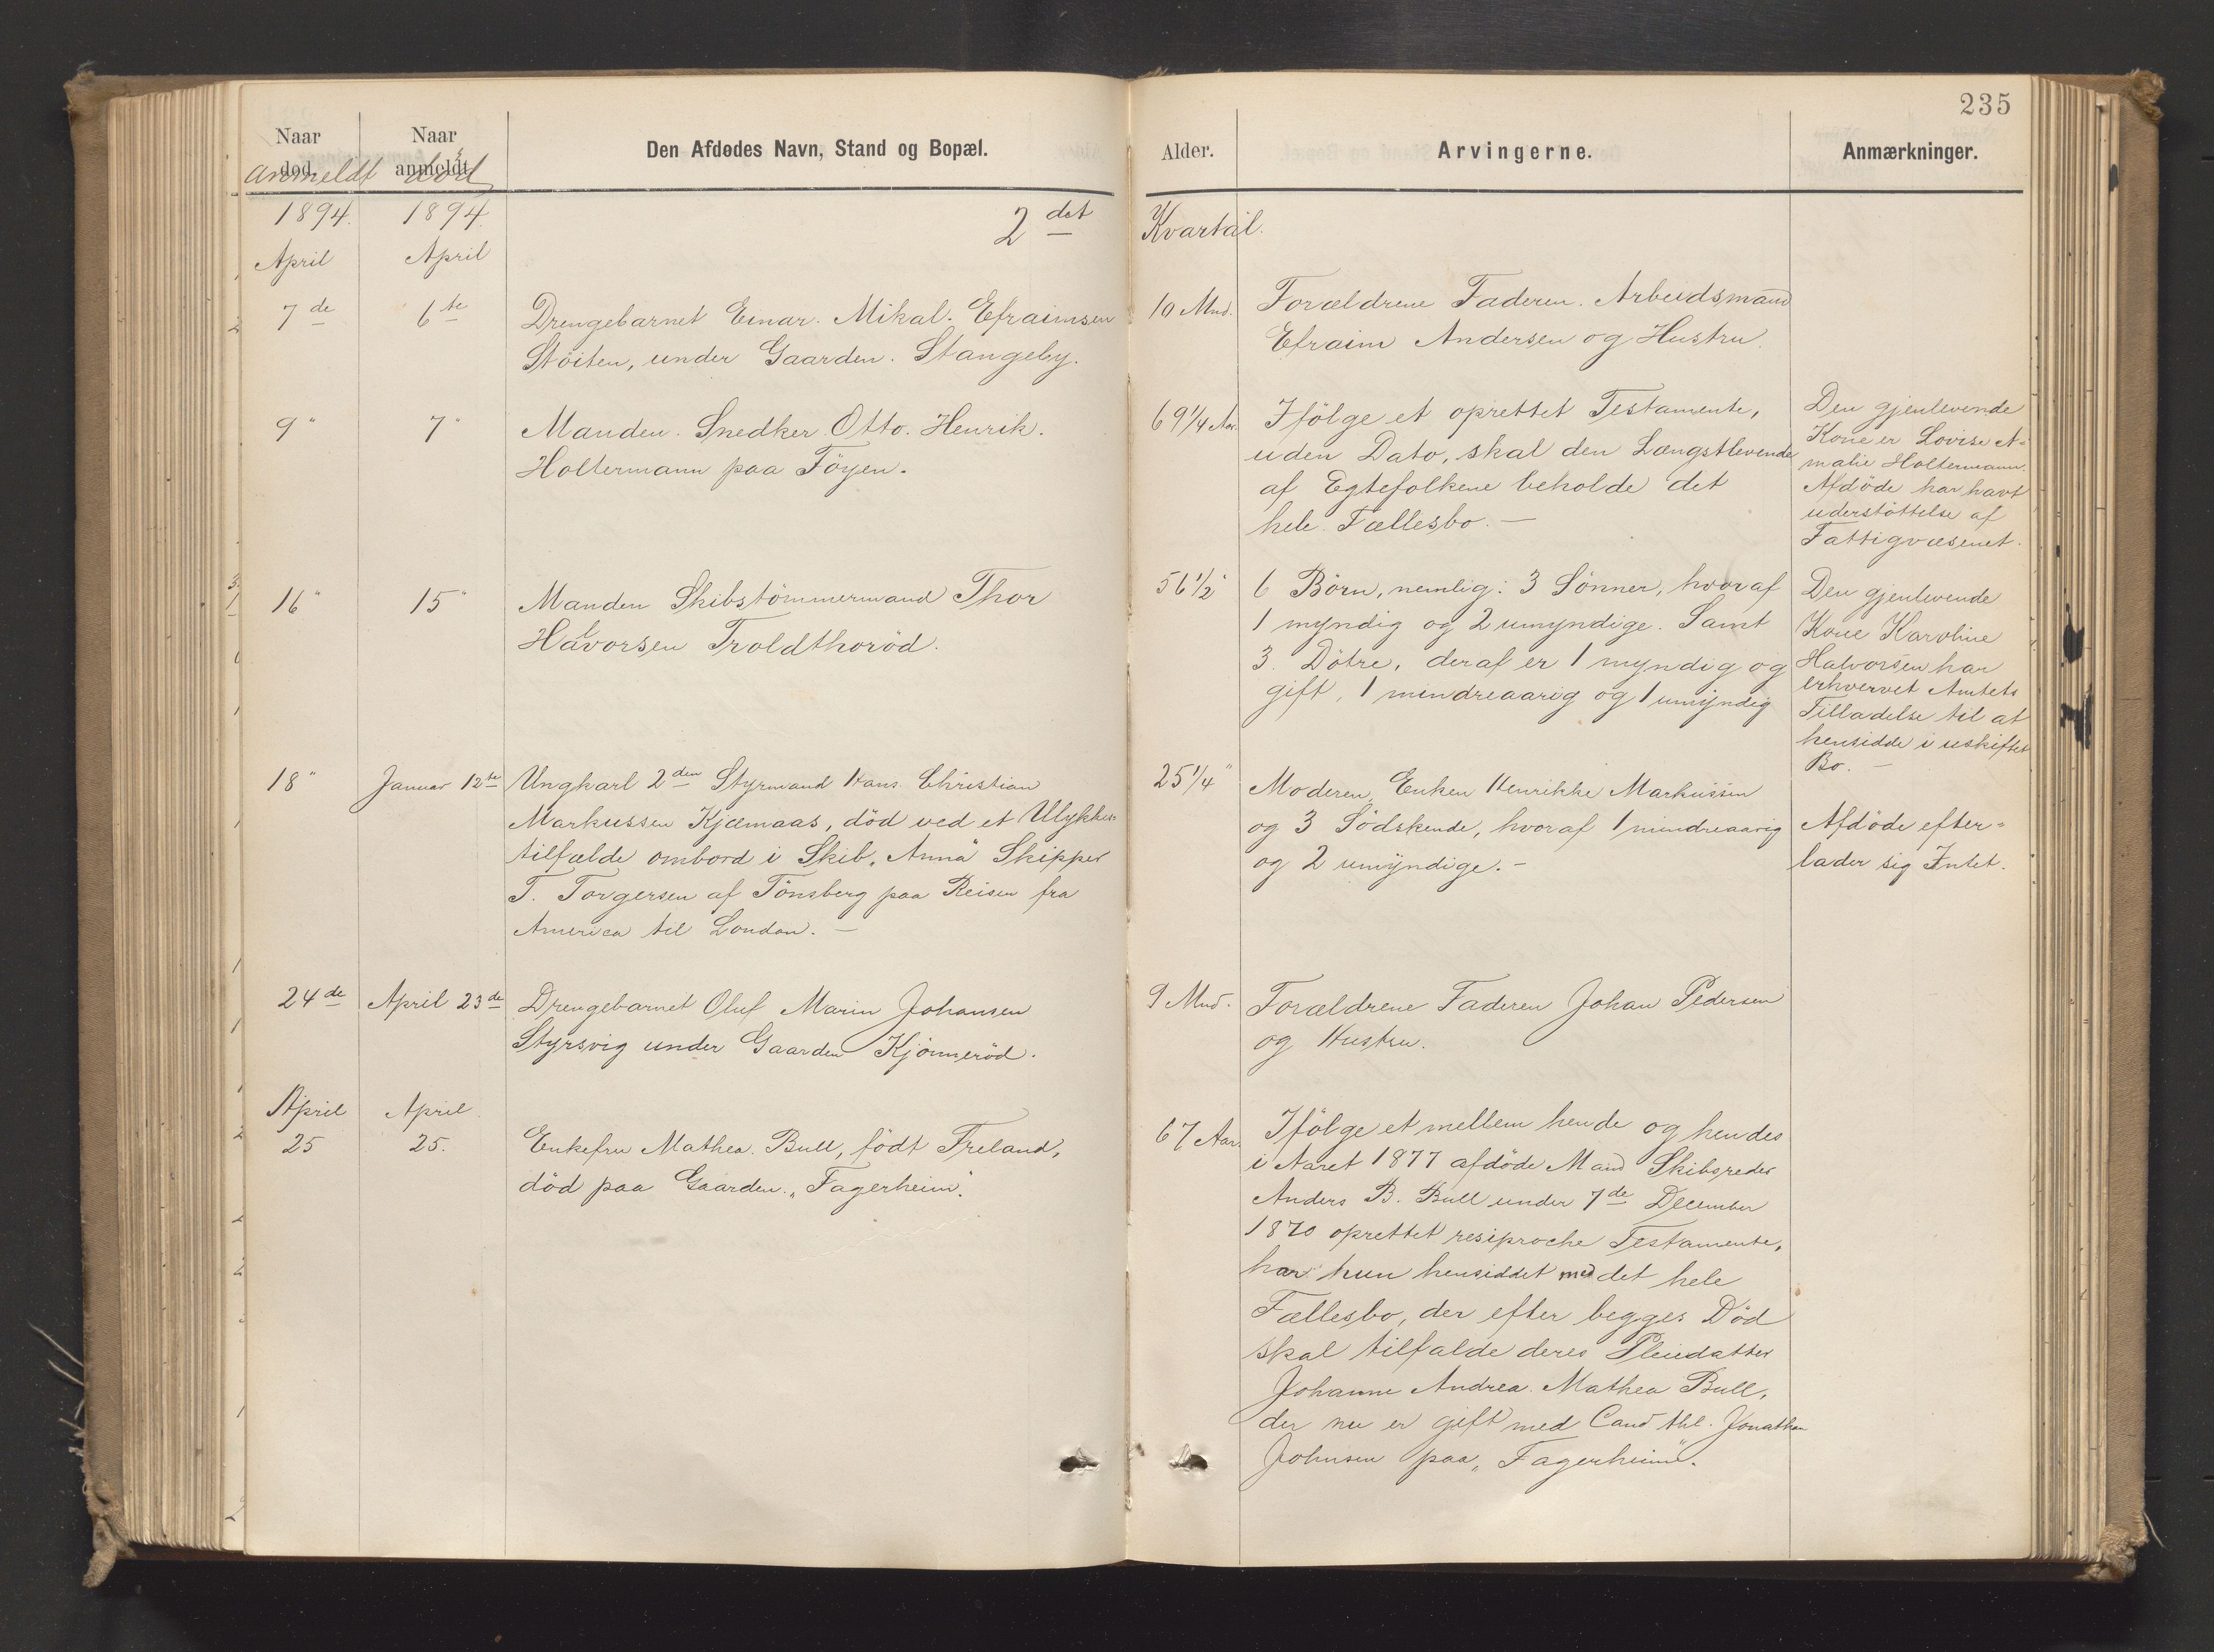 235
Naar død.
Naar anmeldt
Den Afdødes Navn, Stand og Bopæl.
Alder.
Arvingerne.
Anmærkninger.
anmeldt död
1894. 1894.
2det Kvartal.
April April
7de 6te
Drengebarnet Einar. Mikal. Efraimsen
Stöiten, under Gaarden. Stangeby.
10 Mnd.
Forældrene Faderen. Arbeidsmand
Efraim Andersen og Hustru.
9 " 7 "
Manden. Snedker Otto. Henrik.
Holtermann paa Föyen.
69 1/4 Aar.
Ifölge et oprettet Testamente,
uden Dato, skal den Længstlevende
af Egtefolkene beholde det
hele Fællesbo. —
Den gjenlevende
Kone er Lovise A-
malie Holtermann.
Afdöde har havt
understöttelse af
Fattigvæsenet.
16 " 15 "
Manden Skibstömmermand Thor
Halvorsen Troldthoröd.
56 1/2 "
6 Börn, nemlig: 3 Sönner, hvoraf
1 myndig og 2 umyndige. Samt
3. Dötre, deraf er 1 myndig og
gift, 1 mindreaarig og 1 umyndig
Den gjenlevende
Kone Karoline
Halvorsen har
erhvervet Amtets
Tilladelse til at
hensidde i uskiftet
Bo. —
18 " Januar 12te
Ungkarl 2den Styrmand Hans Christian
Markussen Kjæmaas, död ved et Ulykkes-
tilfælde ombord i Skib „Anna" Skipper
T. Torgersen af Tönsberg paa Reisen fra
America til London. —
25 1/4 "
Moderen, Enken Henrikke Markussen
og 3 Södskende, hvoraf 1 mindreaarig
og 2 umyndige. -
Afdöde efter-
lader sig Intet.
24de April 23de
Drengebarnet Oluf Marin Johansen
Styrsvig under Gaarden Kjönneröd.
9 Mnd.
Forældrene Faderen Johan Pedersen
og Hustru.
April April.
25 25.
Enkefru Mathea. Bull, födt Freland,
död paa Gaarden „Fagerheim".
67 Aar.
Ifölge et mellem hende og hendes
i Aaret 1877 afdöde Mand Skibsreder
Anders B. Bull under 7de December
1870 oprettet resiproche Testamente,
har hun hensiddet med det hele
Fællesbo, der efter begges Död
skal tilfalde deres Pleiedatter
Johanne Andrea. Mathea Bull,
der nu er gift med Cand. thl. Jonathan
Johnsen paa „Fagerheim".